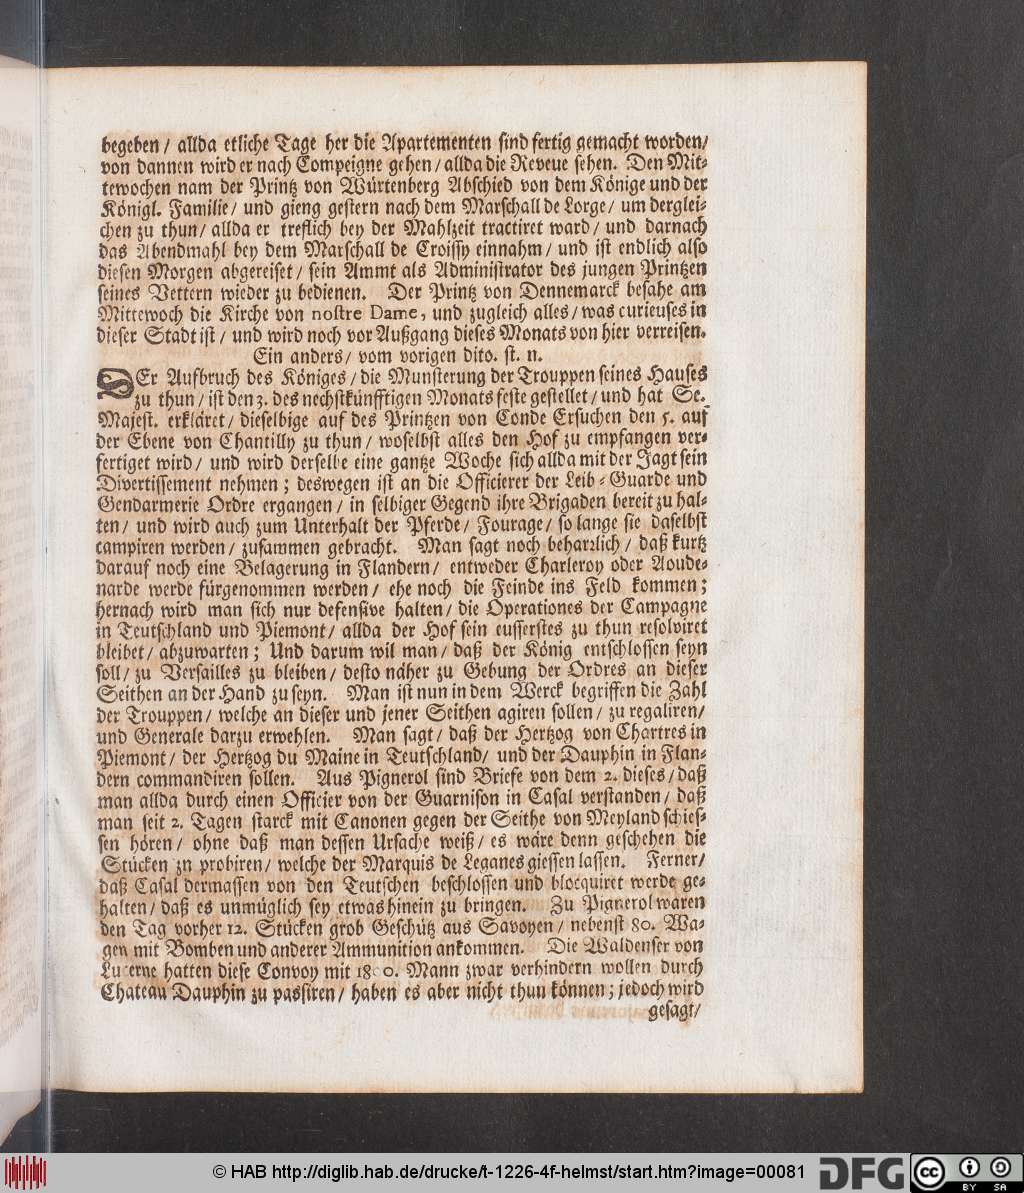 begeben / allda etliche Tage her die Apartementen sind fertig gemacht worden/
von dannen wird er nach Compeigne gehen / allda die Reveue sehen. Den Mit-
tewochen nam der Printz von Würtenberg Abschied von dem Könige und der
Königl. Familie / und gieng gestern nach dem Marschall de Lorge / um derglei-
chen zu thun / allda er treflich bey der Mahlzeit tractiret ward / und darnach
das Abendmahl bey dem Marschall de Croissy einnahm / und ist endlich also
diesen Morgen abgereiset / sein Ammt als Administrator des jungen Printzen
seines Vettern wieder zu bedienen. Der Printz von Dennemarck besahe am
Mittewoch die Kirche von nostre Dame, und zugleich alles / was curieuses in
dieser Stadt ist / und wird noch vor Außgang dieses Monats von hier verreisen.
Ein anders / vom vorigen dito. st. n.
DEr Aufbruch des Königes / die Munsterung der Trouppen seines Hauses
zu thun / ist den 3. des nechstkünfftigen Monats feste gestellet / und hat Se.
Majest. erkläret / dieselbige auf des Printzen von Conde Ersuchen den 5. auf
der Ebene von Chantilly zu thun / woselbst alles den Hof zu empfangen ver-
fertiget wird / und wird derselbe eine gantze Woche sich allda mit der Jagt sein
Divertissement nehmen ; deswegen ist an die Officierer der Leib-Guarde und
Gendarmerie Ordre ergangen / in selbiger Gegend ihre Brigaden bereit zu hal-
ten / und wird auch zum Unterhalt der Pferde / Fourage / so lange sie daselbst
campiren werden / zusammen gebracht. Man sagt noch beharrlich / daß kurtz
darauf noch eine Belagerung in Flandern / entweder Charleroy oder Aoude-
narde werde fürgenommen werden / ehe noch die Feinde ins Feld kommen ;
hernach wird man sich nur defensive halten / die Operationes der Campagne
in Teutschland und Piemont / allda der Hof sein eusserstes zu thun resolviret
bleibet / abzuwarten ; Und darum wil man / daß der König entschlossen seyn
soll / zu Versailles zu bleiben / desto näher zu Gebung der Ordres an dieser
Seithen an der Hand zu seyn. Man ist nun in dem Werck begriffen die Zahl
der Trouppen / welche an dieser und jener Seithen agiren sollen / zu regaliren /
und Generale darzu erwehlen. Man sagt / daß der Hertzog von Chartres in
Piemont / der Hertzog du Maine in Teutschland / und der Dauphin in Flan-
dern commandiren sollen. Aus Pignerol sind Briefe von dem 2. dieses / daß
man allda durch einen Officier von der Guarnison in Casal verstanden / daß
man seit 2. Tagen starck mit Canonen gegen der Seithe von Meyland schies-
sen hören / ohne daß man dessen Ursache weiß / es wäre denn geschehen die
Stücken zu probiren / welche der Marquis de Leganes giessen lassen. Ferner /
daß Casal dermassen von den Teutschen beschlossen und blocquiret werde ge-
halten / daß es unmüglich sey etwas hinein zu bringen. Zu Pignerol waren
den Tag vorher 12. Stücken grob Geschütz aus Savoyen / nebenst 80. Wa-
gen mit Bomben und anderer Ammunition ankommen. Die Waldenser von
Lucerne hatten diese Convoy mit 1800. Mann zwar verhindern wollen durch
Chateau Dauphin zu passiren / haben es aber nicht thun können ; jedoch wird
gesagt /
© HAB http://diglib.hab.de/drucke/t-1226-4f-helmst/start.htm?image=00081
DFG
cc BY SA